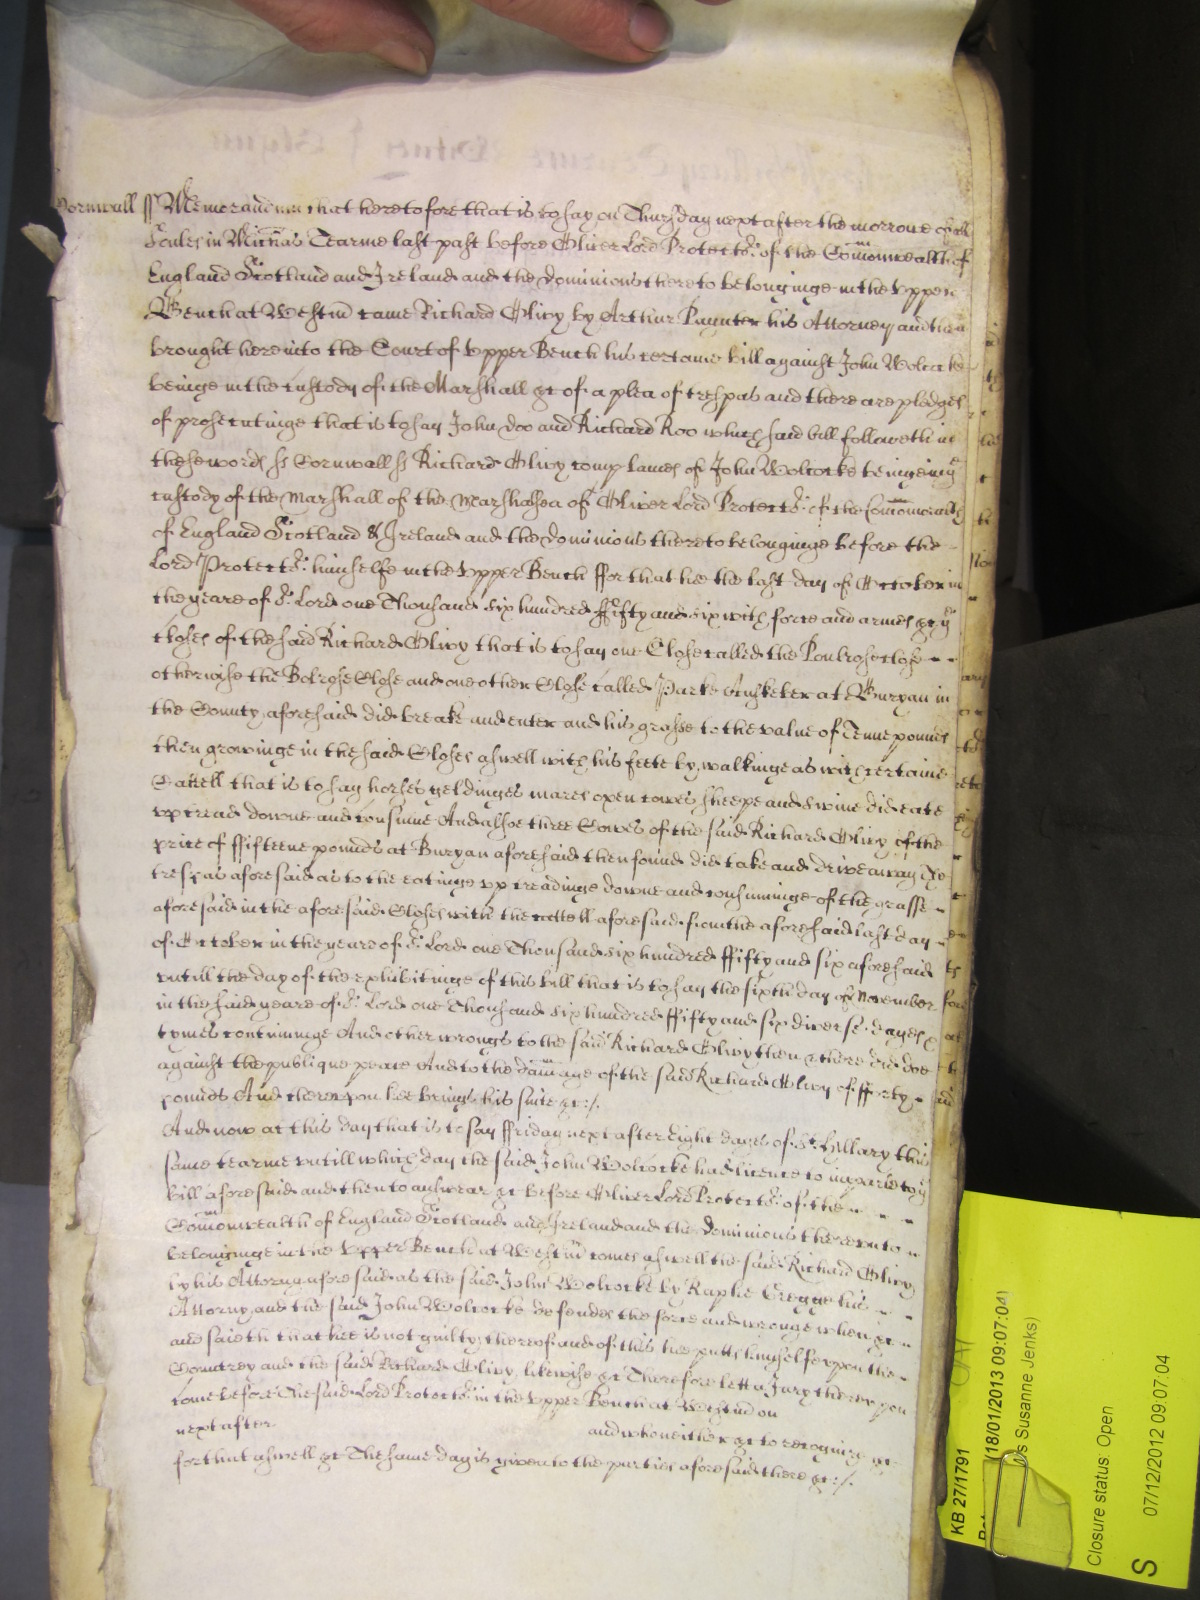 Cornwall ss Memorandum that heretofore that is to say on Thursday next after the morrow of all
Soules in Michas Tearme last past before Oliver Lord Protector of the Comonwealth of
England Scotland and Ireland and the dominions thereto belonginge in the Upper
Bench at Westm came Richard Olivy by Arthur Paynter his Attorney and then
brought here into the Court of Upper Bench his certaine bill against John Wolcocke
beinge in the custody of the Marshall &c of a plea of trespas and there are pledges
of prosecutinge that is to say John Doo and Richard Roo which said bill followeth in
these words ss Cornwall ss Richard Olivy complaines of John Wolcocke being in ye
custody of the Marshall of the Marshalsea of Oliver Lord Protector of the Comonwealth
of England Scotland & Ireland and the dominions thereto belonginge before the
Lord Protector himselfe in the Upper Bench ffor that hee the last day of October in
the yeare of or Lord one Thousand six hundred ffifty and six with force and armes &c ye
closes of the said Richard Olivy that is to say one Close called the Poulrose close
otherwise the Bolrose Close and one other Close called Parke at Buryan in
the County aforesaid did breake and enter and his grasse to the value of Tenne pounds
then growinge in the said Closes aswell with his feete by walkinge as with certaine
Cattell that is to say horses geldinges mares oxen cowes sheepe and swine did eate
up tread downe and consume And alsoe three Cowes of the said Richard Olivy of the
price of ffifteene pounds at Buryan aforesaid then found did take and drive away The
trespas aforesaid as to the eatinge up treadinge downe and consuminge of the grasse
aforesaid in the aforesaid Closes with the cattell aforesaid from the aforesaid last day
of October in the yeare of or Lord one Thousand six hundred ffifty and six aforesaid
untill the day of the exhibitinge of this bill that is to say the sixth day of November
in the said yeare of or Lord one Thousand six hundred ffifty and six diverse dayes &
tymes continuinge And other wrongs to the said Richard Olivy then & there did doe
against the publique peace And to the damage of the said Richard Olivy of fforty
pounds And thereupon hee brings his suite &c
And now at this day that is to say ffriday next after Eight dayes of St Hillary this
same tearme untill which day the said John Wolcocke had licence to imparle to ye
bill aforesaid and then to answear &c before Oliver Lord Protector of the
Comonwealth of England Scotland and Ireland and the dominions thereunto
belonginge in the Upper Bench at Westm comes aswell the said Richard Olivy
by his Attorny aforesaid as the said John Wolcocke by Raphe Gregge his
Attorny and the said John Wolcocke defendes the force and wronge when &c
and saieth that hee is not guilty thereof and of this hee putts himselfe upon the
Countrey and the said Richard Olivy likewise &c Therefore lett a Jury thereupon
come before The said Lord Protector in the Upper Bench at Westm on
next after and who neither &c to recognize &c
for that aswell &c The same day is given to the parties aforesaid there &c
KB 27/1791
(18/01/2013 09:07:04)
Susanne Jenks)
Closure status: Open
S 07/12/2012 09:07:04